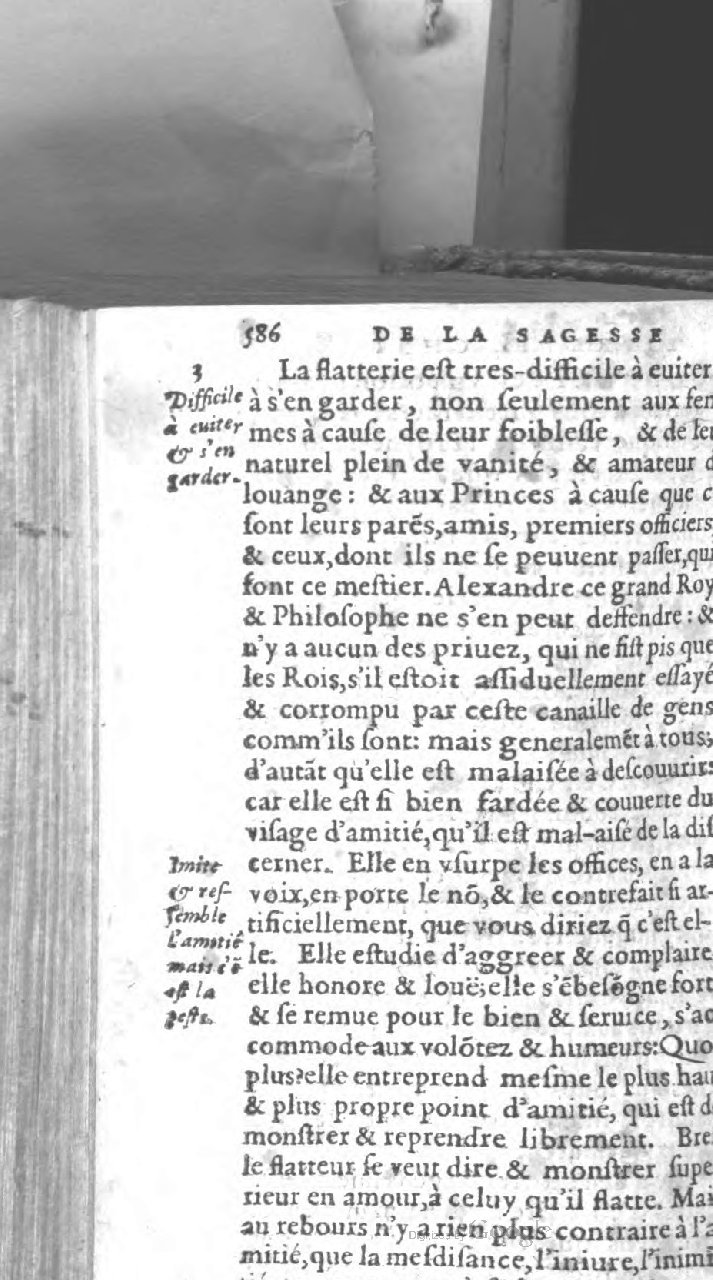 586 DE LA SAGESSE
3
Difficile
à euiter
& s'en
garder.
La flatterie est tres-difficile à euiter
à s'en garder, non seulement aux fem
mes à cause de leur foiblesse, & de leu
naturel plein de vanité, & amateur d
louange: & aux Princes à cause que c
sont leurs parẽs,amis, premiers officiers,
& ceux,dont ils ne se peuuent passer,qui
font ce mestier. Alexandre ce grand Roy
& Philosophe ne s'en peut deffendre: &
n'y a aucun des priuez, qui ne fist pis que
les Rois,s'il estoit assiduellement essayé
& corrompu par ceste canaille de gens
comm'ils sont: mais generalemẽt à tous;
d'autãt qu'elle est malaisée à descouurir:
car elle est si bien fardée & couuerte du
visage d'amitié,qu'il est mal-aisé de la dis
Imite
& res-
semble
l'amitié
mais c'ẽ
est la
peste.
cerner. Elle en vsurpe les offices, en a la
voix,en porte le nõ,& le contrefait si ar-
tificiellement, que vous diriez q̃ c'est el-
le. Elle estudie d'aggreer & complaire
elle honore & louë;elle s'ẽbesõgne fort
& se remue pour le bien & seruice, s'ac
commode aux volõtez & humeurs:Quo
plus?elle entreprend mesme le plus hau
& plus propre point d'amitié, qui est d
monstrer & reprendre librement. Bre
le flatteur se veut dire & monstrer supe
rieur en amour,à celuy qu'il flatte. Mai
au rebours n'y a rien plus contraire à l'a
mitié,que la mesdisance,l'iniure,l'inimi